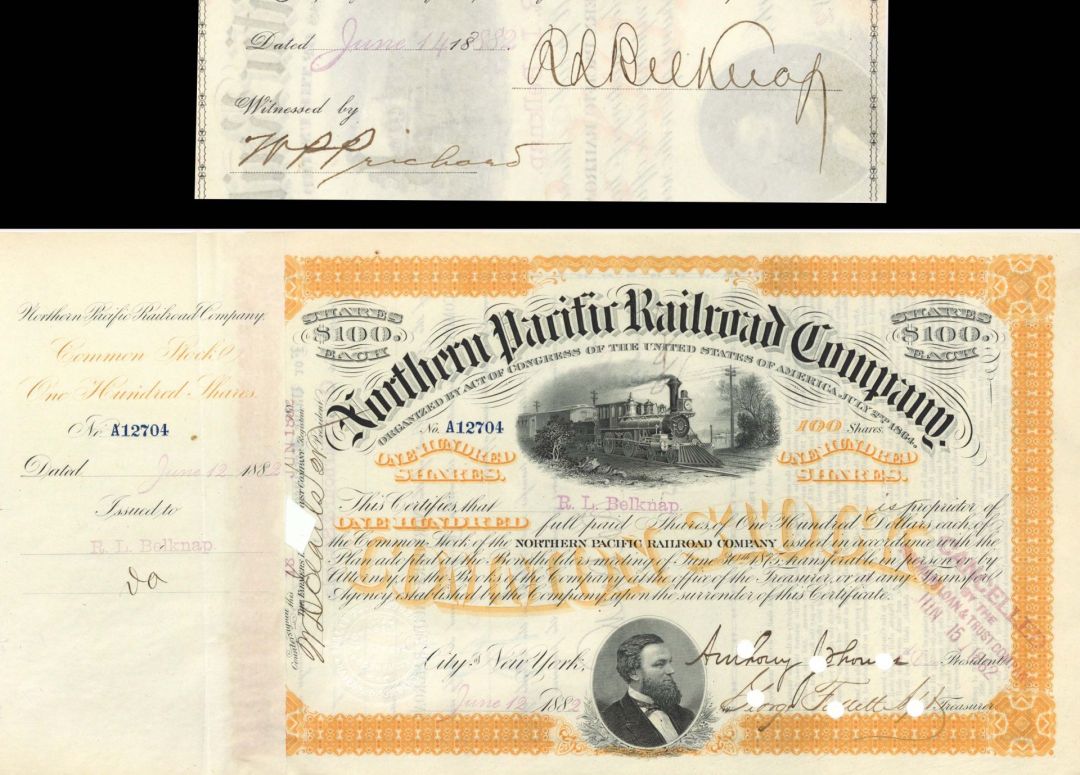 Dated June 14 1882
R L Belknap
Witnessed by
W P Prichard
Northern Pacific Railroad Company.
Common Stock
One Hundred Shares.
No. A12704
Dated June 12 1882
Issued to
R. L. Belknap.
SHARES
$100.
EACH
Northern Pacific Railroad Company.
SHARES
$100.
EACH
ORGANIZED BY ACT OF CONGRESS OF THE UNITED STATES OF AMERICA, JULY 2ND 1864.
No. A12704
100 Shares.
ONE HUNDRED
SHARES.
ONE HUNDRED
SHARES.
This Certifies, that R. L. Belknap. is proprietor of
ONE HUNDRED full paid Shares, of One Hundred Dollars each, of
the Common Stock of the NORTHERN PACIFIC RAILROAD COMPANY issued in accordance with the
Plan adopted at the Bondholders meeting of June 30th 1875, transferable in person or by
Attorney, on the books of the Company at the office of the Treasurer, or at any Transfer
Agency established by the Company, upon the surrender of this Certificate.
COMMON STOCK
CANCELLED
BY THE
LOAN & TRUST CO.
JUN 15 1882
City of New York,
June 12 1882
President.
Treasurer.
Countersigned this